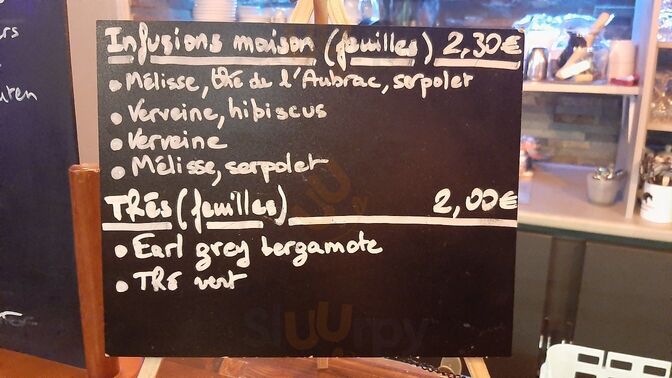 Infusions maison (feuilles) 2,30€
• Mélisse, thé de l'Aubrac, serpolet
• Verveine, hibiscus
• Verveine
• Mélisse, serpolet
Thés (feuilles) 2,00€
• Earl grey bergamote
• Thé vert
sluurpy